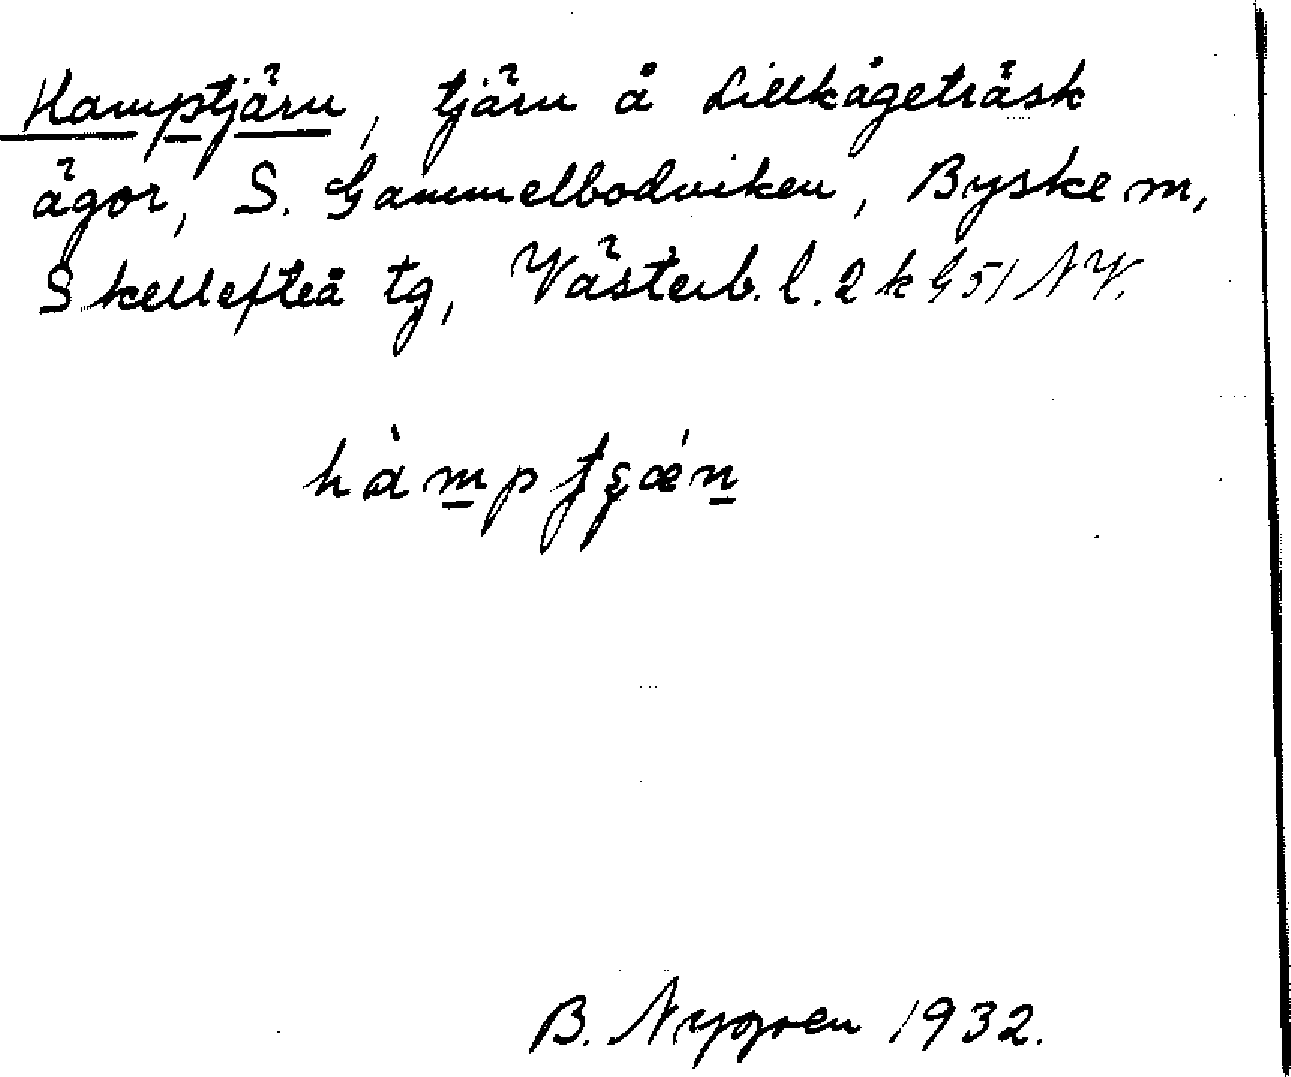 Hamptjärn, tjärn å Lillkågeträsk
ägor, S. Gammelbodviken, Byske sn,
Skellefteå tg, Västerb. l. 2 k G 51 NV.
hàmptʂǽn
B. Nygren 1932.